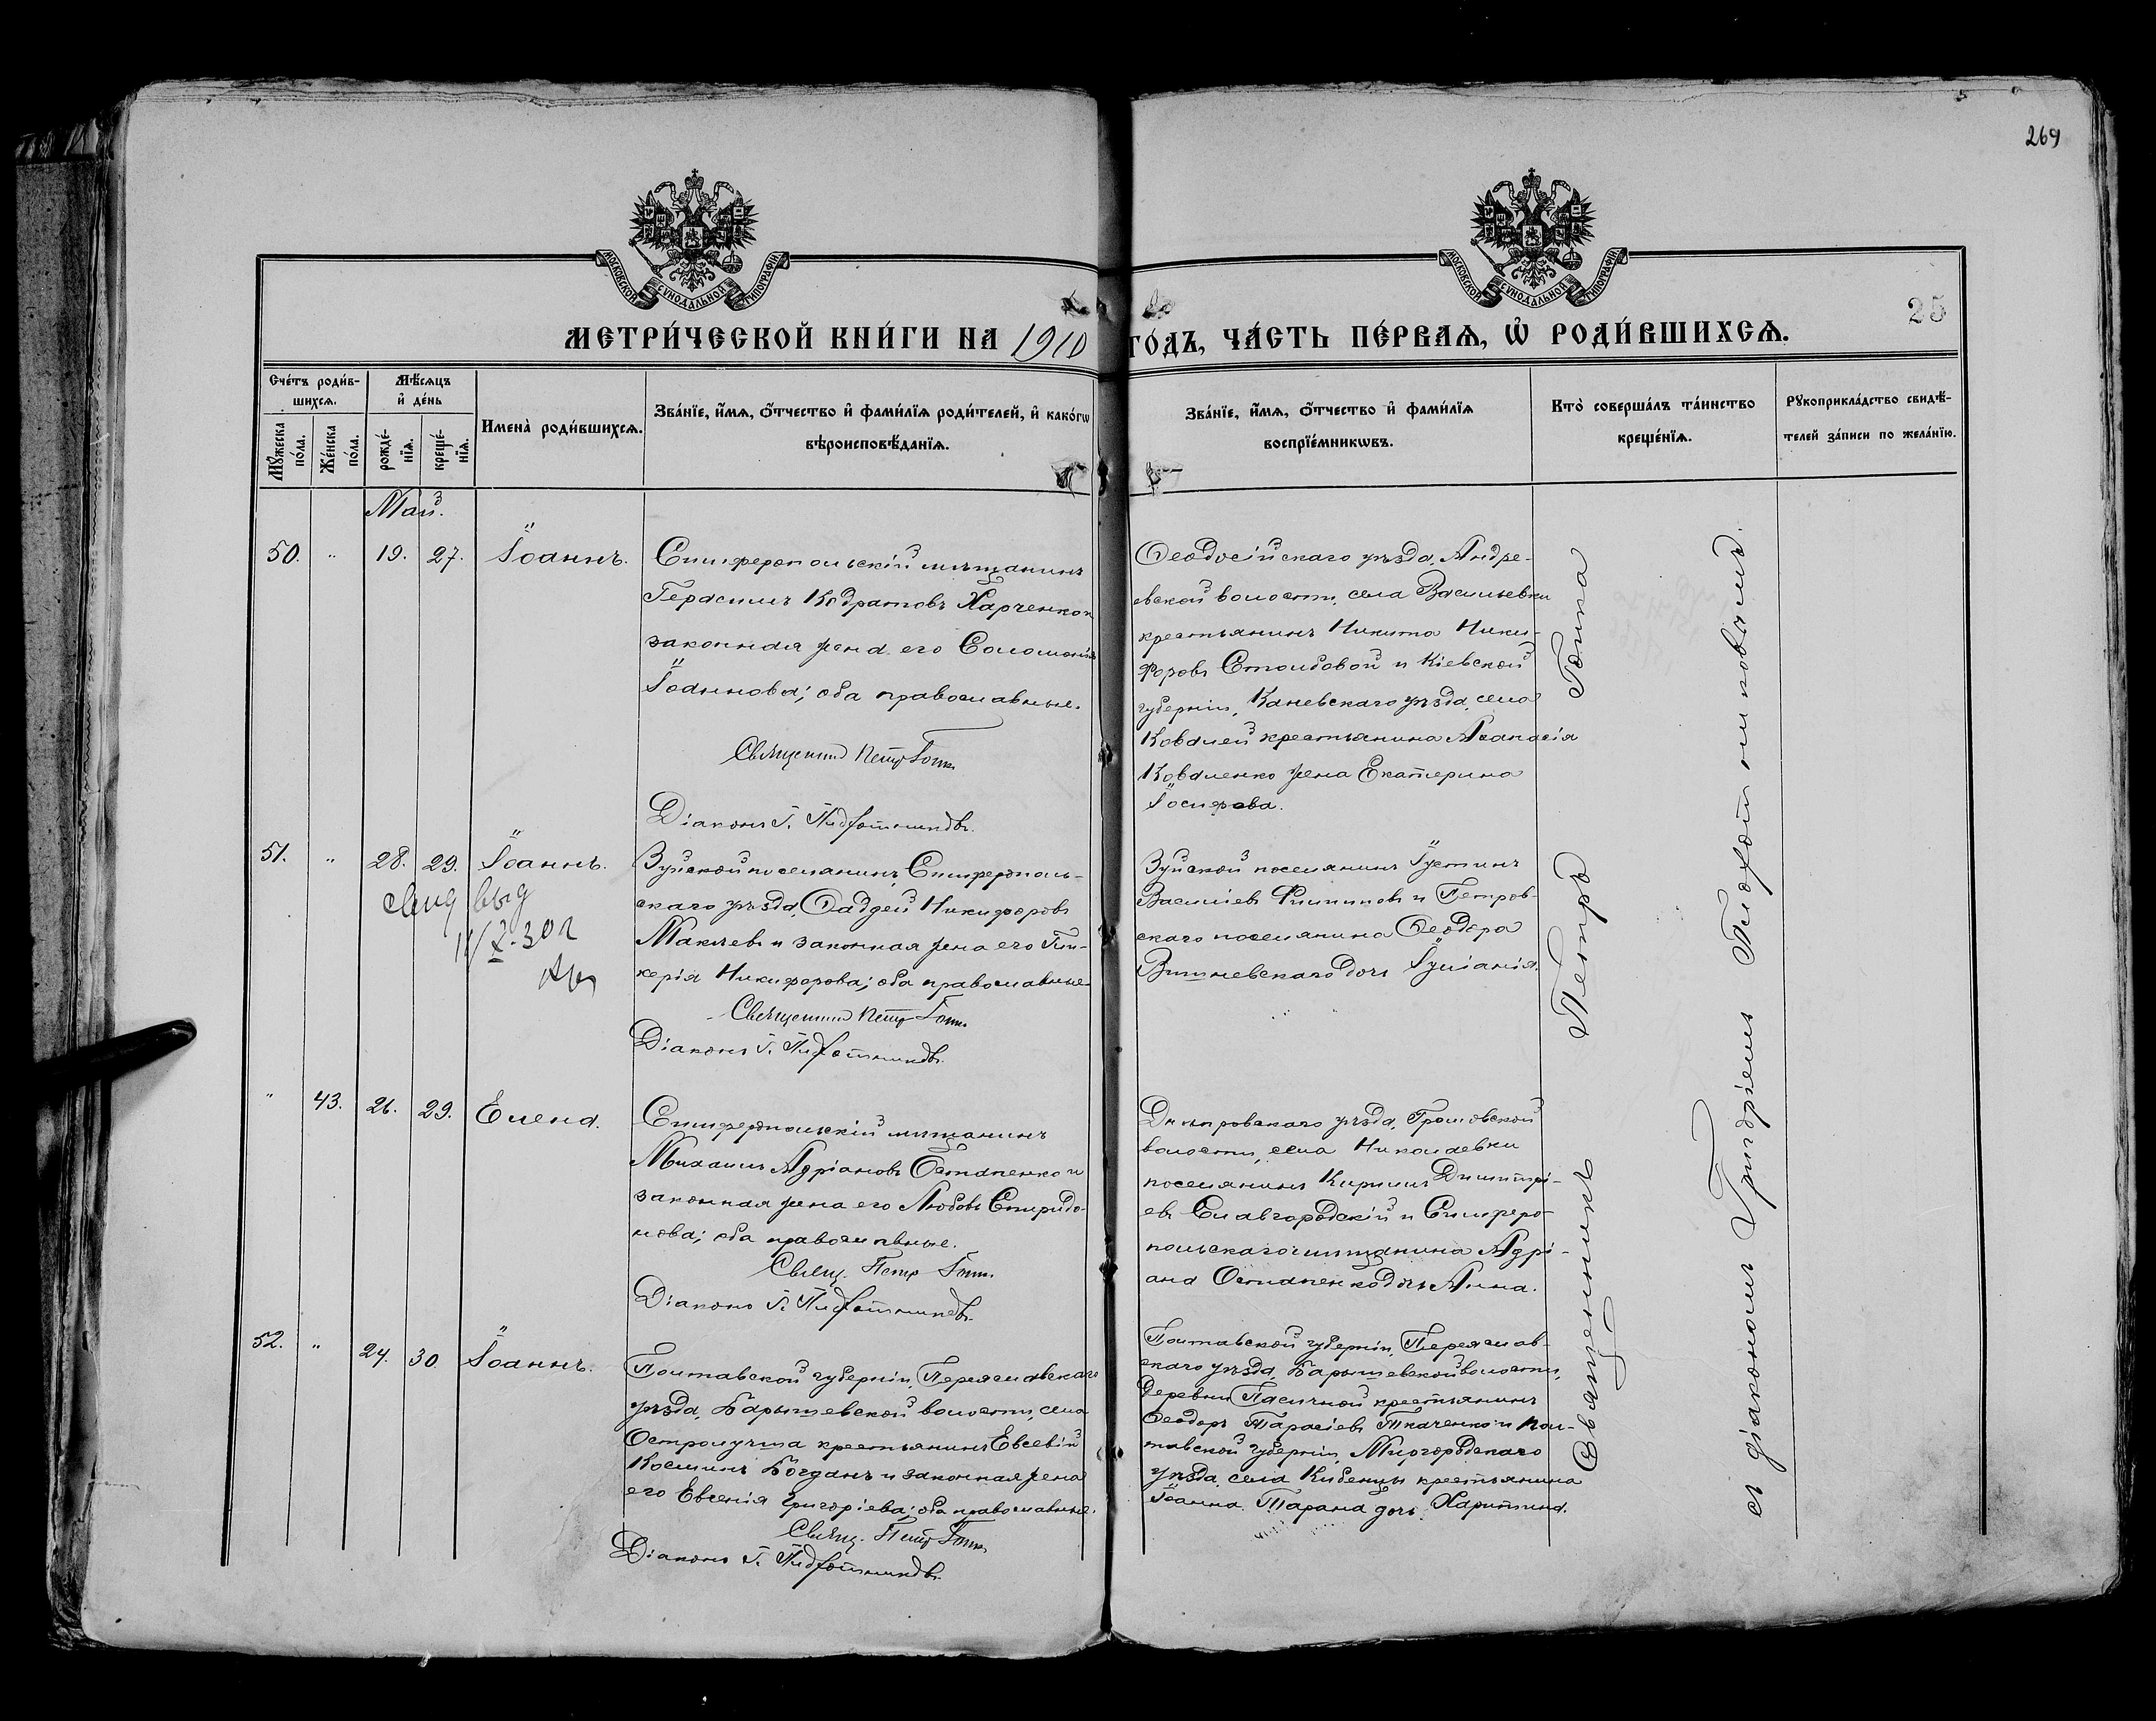 269
МОСКОВСКОЙ СУНОДАЛЬНОЙ ТИПОГРАФІИ
МОСКОВСКОЙ СУНОДАЛЬНОЙ ТИПОГРАФІИ
25
МЕТРИ́ЧЕСКОЙ КНИ́ГИ НА 1910 ГО́ДЪ, ЧА́СТЬ ПЕ́РВАѦ, Ѡ҆ РОДИ́ВШИХСѦ.
Сче́тъ роди́в-
шихсѧ.
Мꙋ́жеска по́ла.
Же́нска по́ла.
Мѣ́сѧцъ
и҆ де́нь
рожде́-
нїѧ.
креще́-
нїѧ.
Имена̀ роди́вшихсѧ.
Зва́нїе, и҆́мѧ, ѻ҆́тчество и҆ фами́лїѧ роди́телей, и҆ како́гѡ
вѣроисповѣ́данїѧ.
Зва́нїе, и҆́мѧ, ѻ҆́тчество и҆ фами́лїѧ
воспрїе́мникѡвъ.
Кто̀ соверша́лъ та́инство
креще́нїѧ.
Рꙋкоприкла́дство свидѣ́-
телей за́писи по жела́нїю.
Май.
50. " 19. 27. Іоаннъ.
Симферопольскій мѣщанинъ
Герасимъ Кодратовъ Харченко и
законная жена его Соломонія
Іоаннова; оба православные.
Священник Петр Гопка
Діаконъ Г. Пидхотниковъ.
Ѳеодосійскаго уѣзда, Андре-
евской волости, села Васильевки
крестьянинъ Никита Ники-
форовъ Столбовой и Кіевской
губерніи, Каневскаго уѣзда, села
Ковалей крестьянина Аѳанасія
Коваленко жена Екатерина
Іосифова.
51. " 28. 29. Іоаннъ.
свид выд
11/X-30 г
Зуйской поселянинъ, Симферополь-
скаго уѣзда, Ѳаддей Никифоровъ
Макѣевъ и законная жена его Гли-
керія Никифорова; оба православные.
Священник Петр Гопка
Діаконъ Г. Пидхотниковъ.
Зуйской поселянинъ Іустинъ
Васильевъ Филиповъ и Петров-
скаго поселянина Ѳеодора
Вишневскаго дочь Іуліанія.
" 43. 26. 29. Елена.
Симферопольскій мѣщанинъ
Михаилъ Адріановъ Остапенко и
законная жена его Любовь Спиридо-
нова; оба православные.
Свящ. Петр Гопка
Діаконъ Г. Пидхотниковъ.
Днѣпровскаго уѣзда, Громовской
волости, села Николаевки
поселянинъ Кириллъ Димитрі-
евъ Славгородскій и Симферо-
польскаго мѣщанина Адрі-
ана Остапенко дочь Анна.
52. " 24. 30. Іоаннъ.
Полтавской губерніи, Переяславскаго
уѣзда, Барышевской волости, села
Остролучья крестьянинъ Евсевій
Косминъ Богданъ и законная жена
его Евгенія Григоріева; оба православные.
Свящ. Петр Гопка
Діаконъ Г. Пидхотниковъ.
Полтавской губерніи, Переяслав-
скаго уѣзда, Барышевской волости,
деревни Пасичной крестьянинъ
Ѳеодоръ Тарасіевъ Ткаченко и Пол-
тавской губерніи, Миргородскаго
уѣзда, села Кибенцы крестьянина
Іоанна Тарана дочь Харитина.
Священникъ Петръ Гопка
съ діакономъ Григоріемъ Пидхотниковымъ.